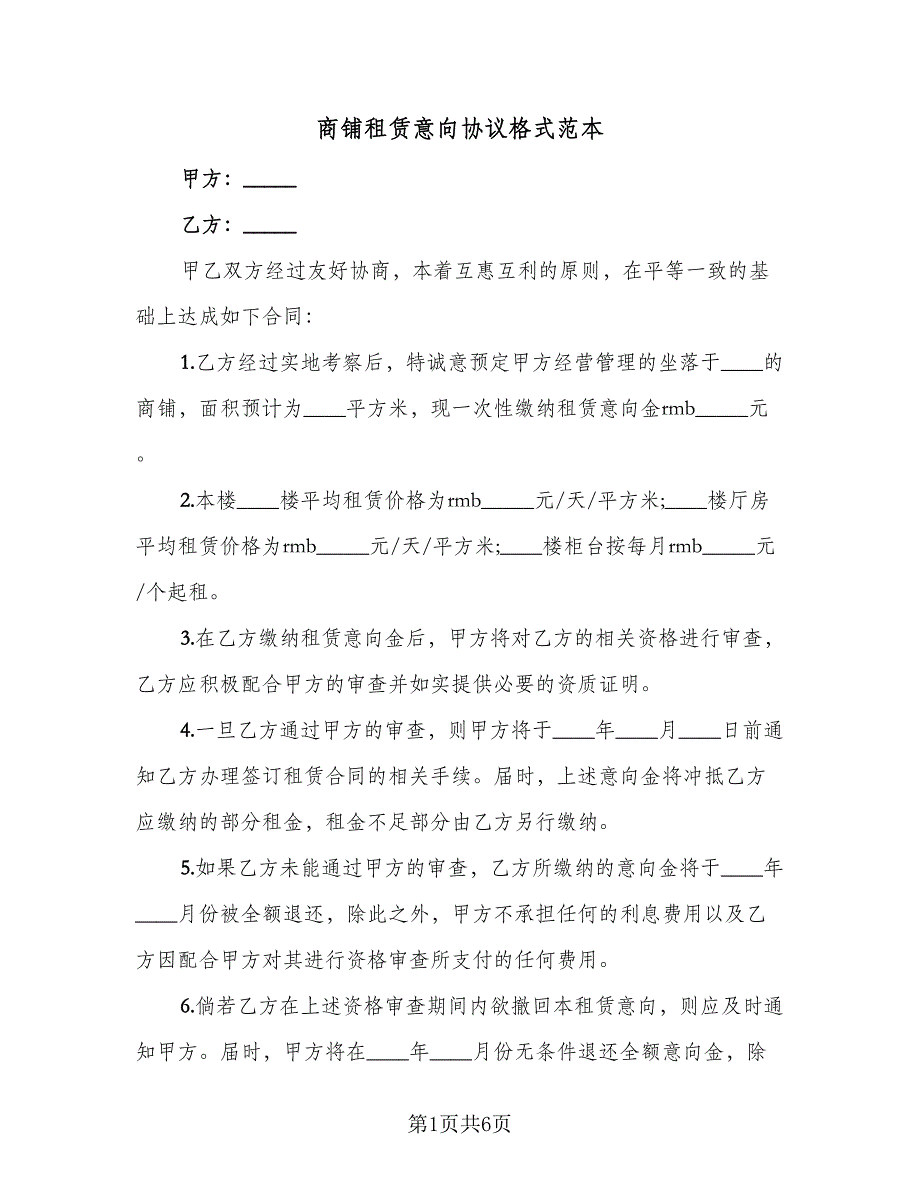 商铺租赁意向协议格式范本
甲方：_____
乙方：_____
甲乙双方经过友好协商，本着互惠互利的原则，在平等一致的基
础上达成如下合同：
1.乙方经过实地考察后，特诚意预定甲方经营管理的坐落于____的
商铺，面积预计为____平方米，现一次性缴纳租赁意向金rmb_____元
。
2.本楼____楼平均租赁价格为rmb_____元/天/平方米;____楼厅房
平均租赁价格为rmb_____元/天/平方米;____楼柜台按每月rmb_____元
/个起租。
3.在乙方缴纳租赁意向金后，甲方将对乙方的相关资格进行审查，
乙方应积极配合甲方的审查并如实提供必要的资质证明。
4.一旦乙方通过甲方的审查，则甲方将于____年____月____日前通
知乙方办理签订租赁合同的相关手续。届时，上述意向金将冲抵乙方
应缴纳的部分租金，租金不足部分由乙方另行缴纳。
5.如果乙方未能通过甲方的审查，乙方所缴纳的意向金将于____年
____月份被全额退还，除此之外，甲方不承担任何的利息费用以及乙
方因配合甲方对其进行资格审查所支付的任何费用。
6.倘若乙方在上述资格审查期间内欲撤回本租赁意向，则应及时通
知甲方。届时，甲方将在____年____月份无条件退还全额意向金，除
第1页共6页